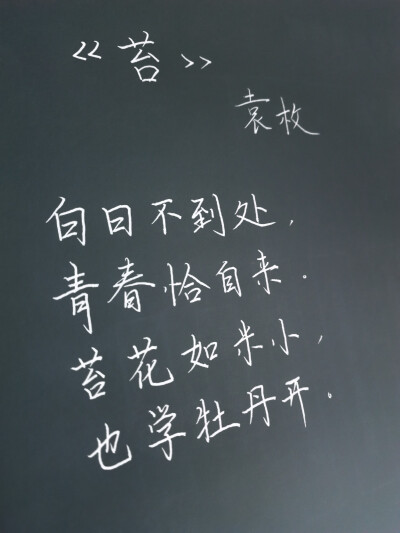 《苔》
袁枚
白日不到处,
青春恰自来.
苔花如米小,
也学牡丹开.